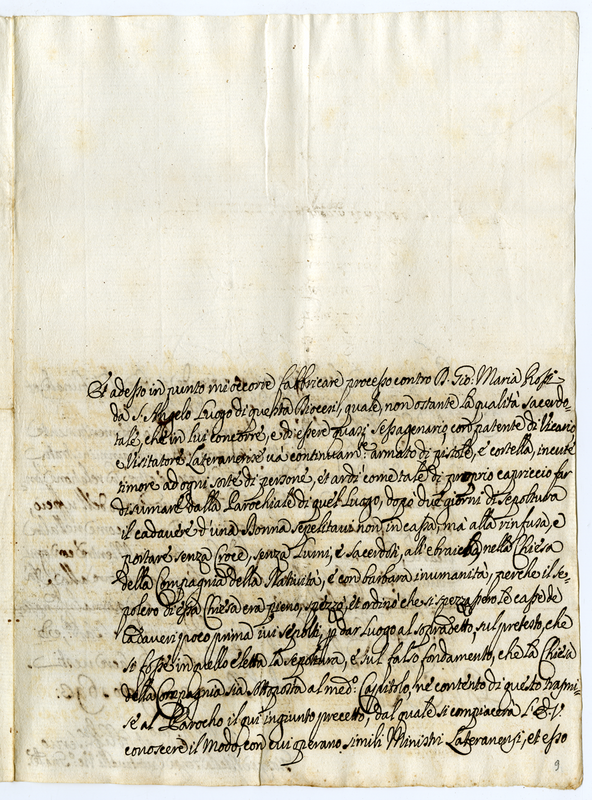 Et adesso in punto mi occorre fabbricare processo contro D. Gio: Maria Rossi
da S. Angelo Luogo di questa Diocesi, quale, non ostante la qualità sacerdo-
tale, che in lui concorre, e di essere quasi sessagenario, con patente di Vicario
e Visitatore Lateranense và continuam.e armato di pistole, e coltella, incute
timore ad ogni sorte di persone, et ardì come tale di proprio capriccio far
disumare dalla Parochiale di quel Luogo, dopo due giorni di sepoltura
il cadavere d'una Donna sepelitavi non in cassa, ma alla rinfusa, e
portare senza Croce, senza Lumi, e sacerdoti, all'ebraica, nella Chiesa
della Compagnia della Natività, e con barbara inumanità, perche il se-
polcro di essa Chiesa era pieno, spezzò, et ordinò che si spezzassero le casse de
cadaveri poco prima ivi sepolti, p dar luogo al sopradetto, sul pretesto, che
si fosse in quello eletta la sepoltura, e sul falso fondamento, che la Chiesa
della Compagnia sia sottoposta al med.o Capitolo, ne contento di questo trasmi-
se al Parocho il qui ingiunto precetto, dal quale si compiacerà
conoscere il modo, con cui operano simili Ministri Lateranensi, et esso
9